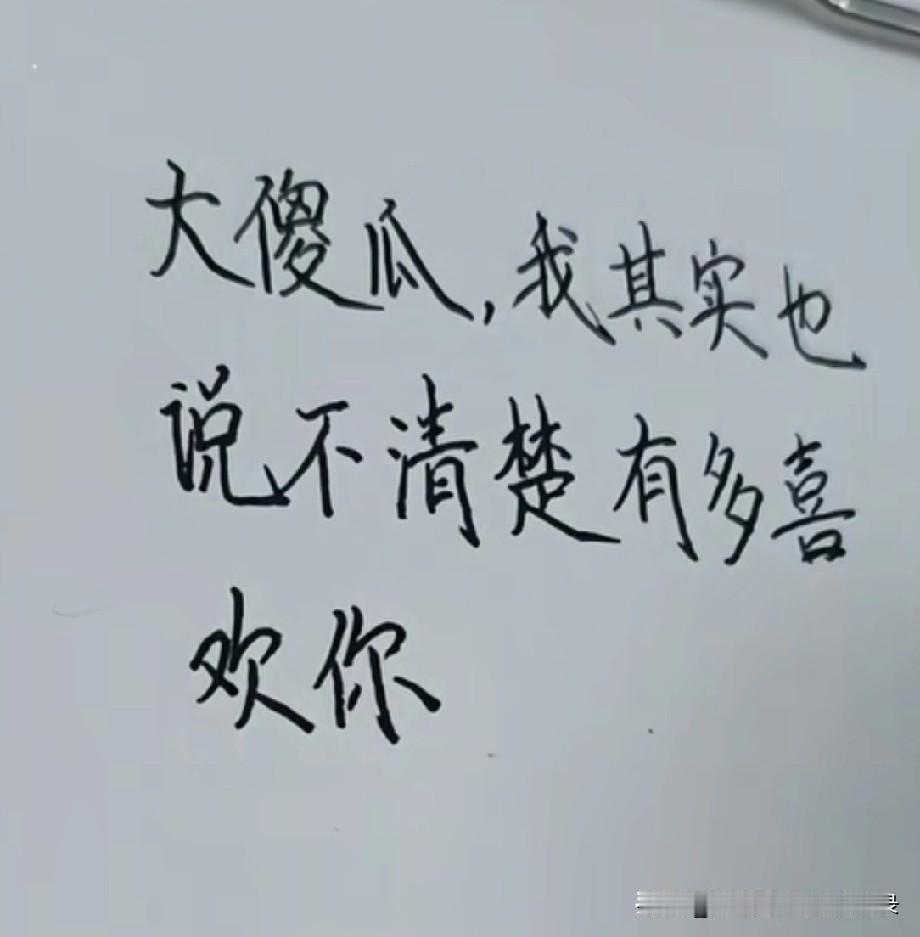 大傻瓜,我其实也
说不清楚有多喜
欢你